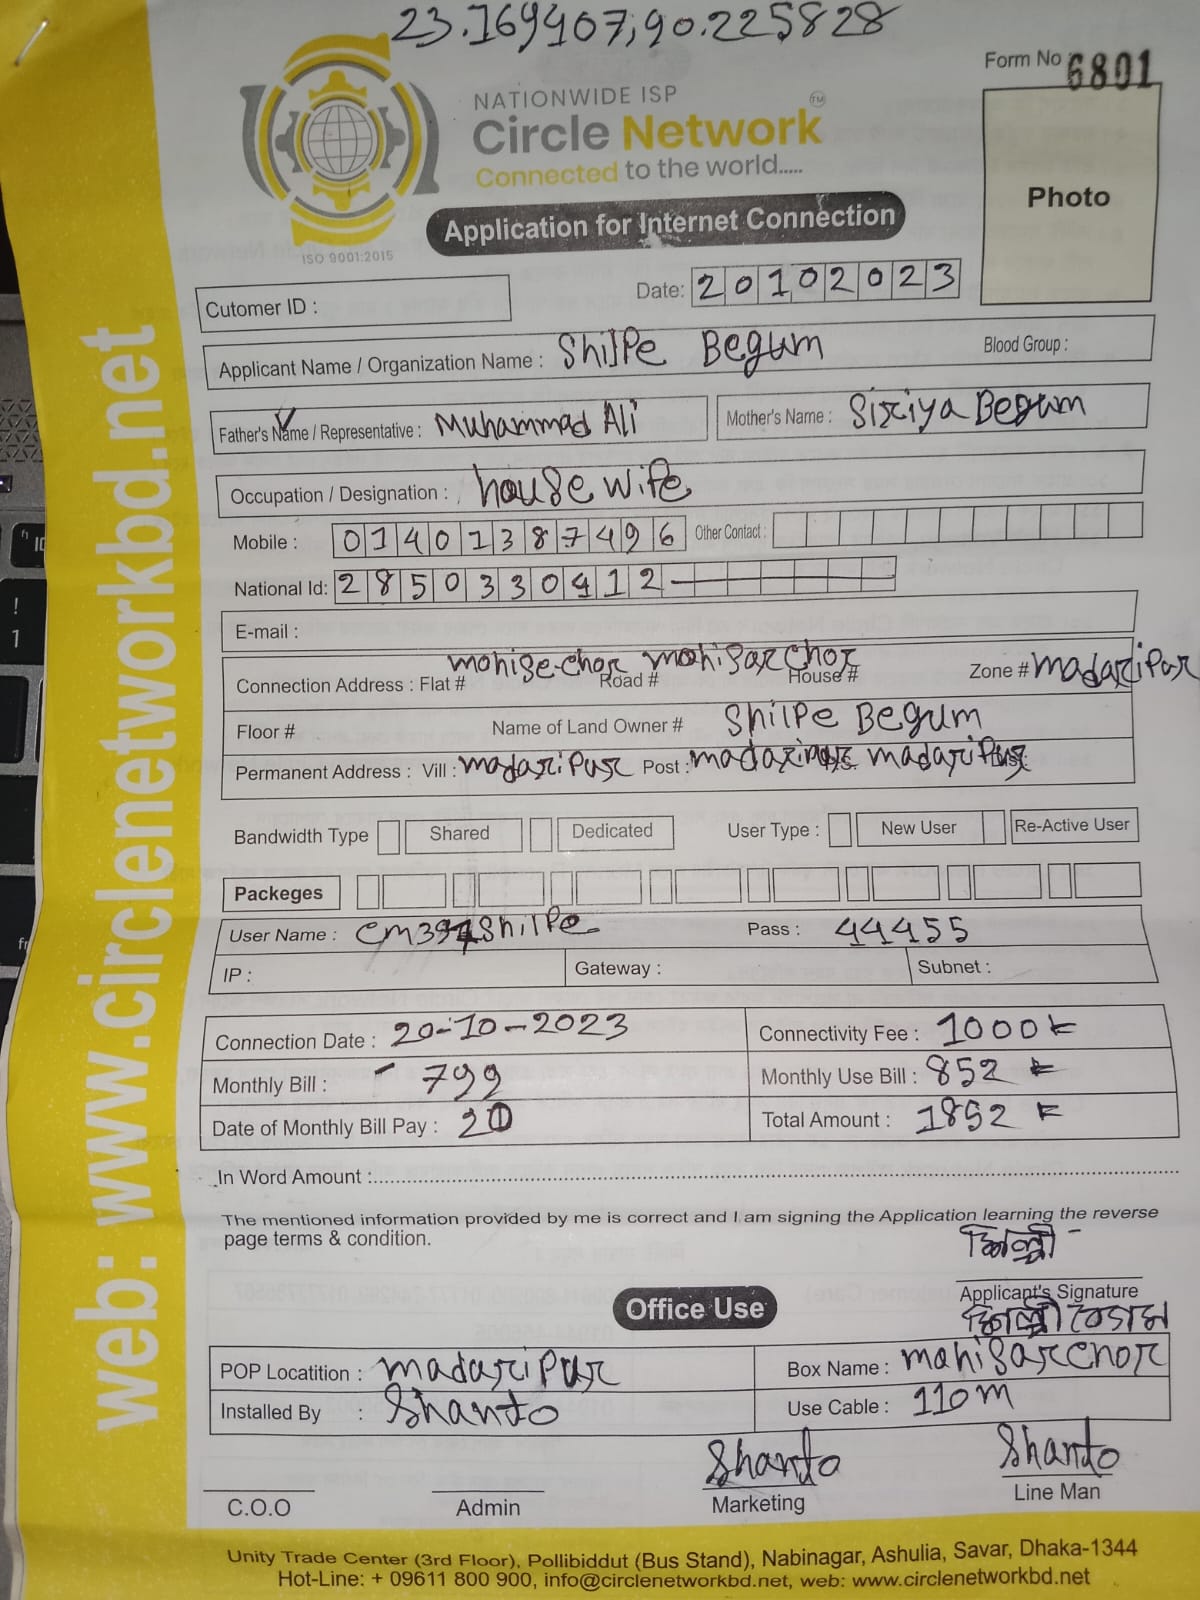 23.169407,90.225828
Form No 6801
NATIONWIDE ISP
Circle Network TM
Connected to the world.....
ISO 9001:2015
Application for Internet Connection
Photo
Cutomer ID :
Date: 20102023
Applicant Name / Organization Name : Shilpe Begum Blood Group :
Father's Name / Representative : Muhammad Ali Mother's Name : Siriya Begum
Occupation / Designation : house wife
Mobile : 01401387496 Other Contact :
National Id: 2850330412
E-mail :
Connection Address : Flat # Road # mohisarchor House # Zone # madaripur
Floor # Name of Land Owner # Shilpe Begum
Permanent Address : Vill : madaripur Post : madaripur
Bandwidth Type Shared Dedicated User Type : New User Re-Active User
Packeges
User Name : Pass : 44455
IP : Gateway : Subnet :
Connection Date : 20-10-2023 Connectivity Fee : 1000
Monthly Bill : 799 Monthly Use Bill : 852
Date of Monthly Bill Pay : 20 Total Amount : 1852
In Word Amount :
The mentioned information provided by me is correct and I am signing the Application learning the reverse
page terms & condition.
শিল্পী
Applicant's Signature
শিল্পী বেগম
Office Use
POP Locatition : madaripur Box Name : mohisarchor
Installed By : Shanto Use Cable : 110m
Shanto Shanto
C.O.O Admin Marketing Line Man
Unity Trade Center (3rd Floor), Pollibiddut (Bus Stand), Nabinagar, Ashulia, Savar, Dhaka-1344
Hot-Line: + 09611 800 900, info@circlenetworkbd.net, web: www.circlenetworkbd.net
web: www.circlenetworkbd.net